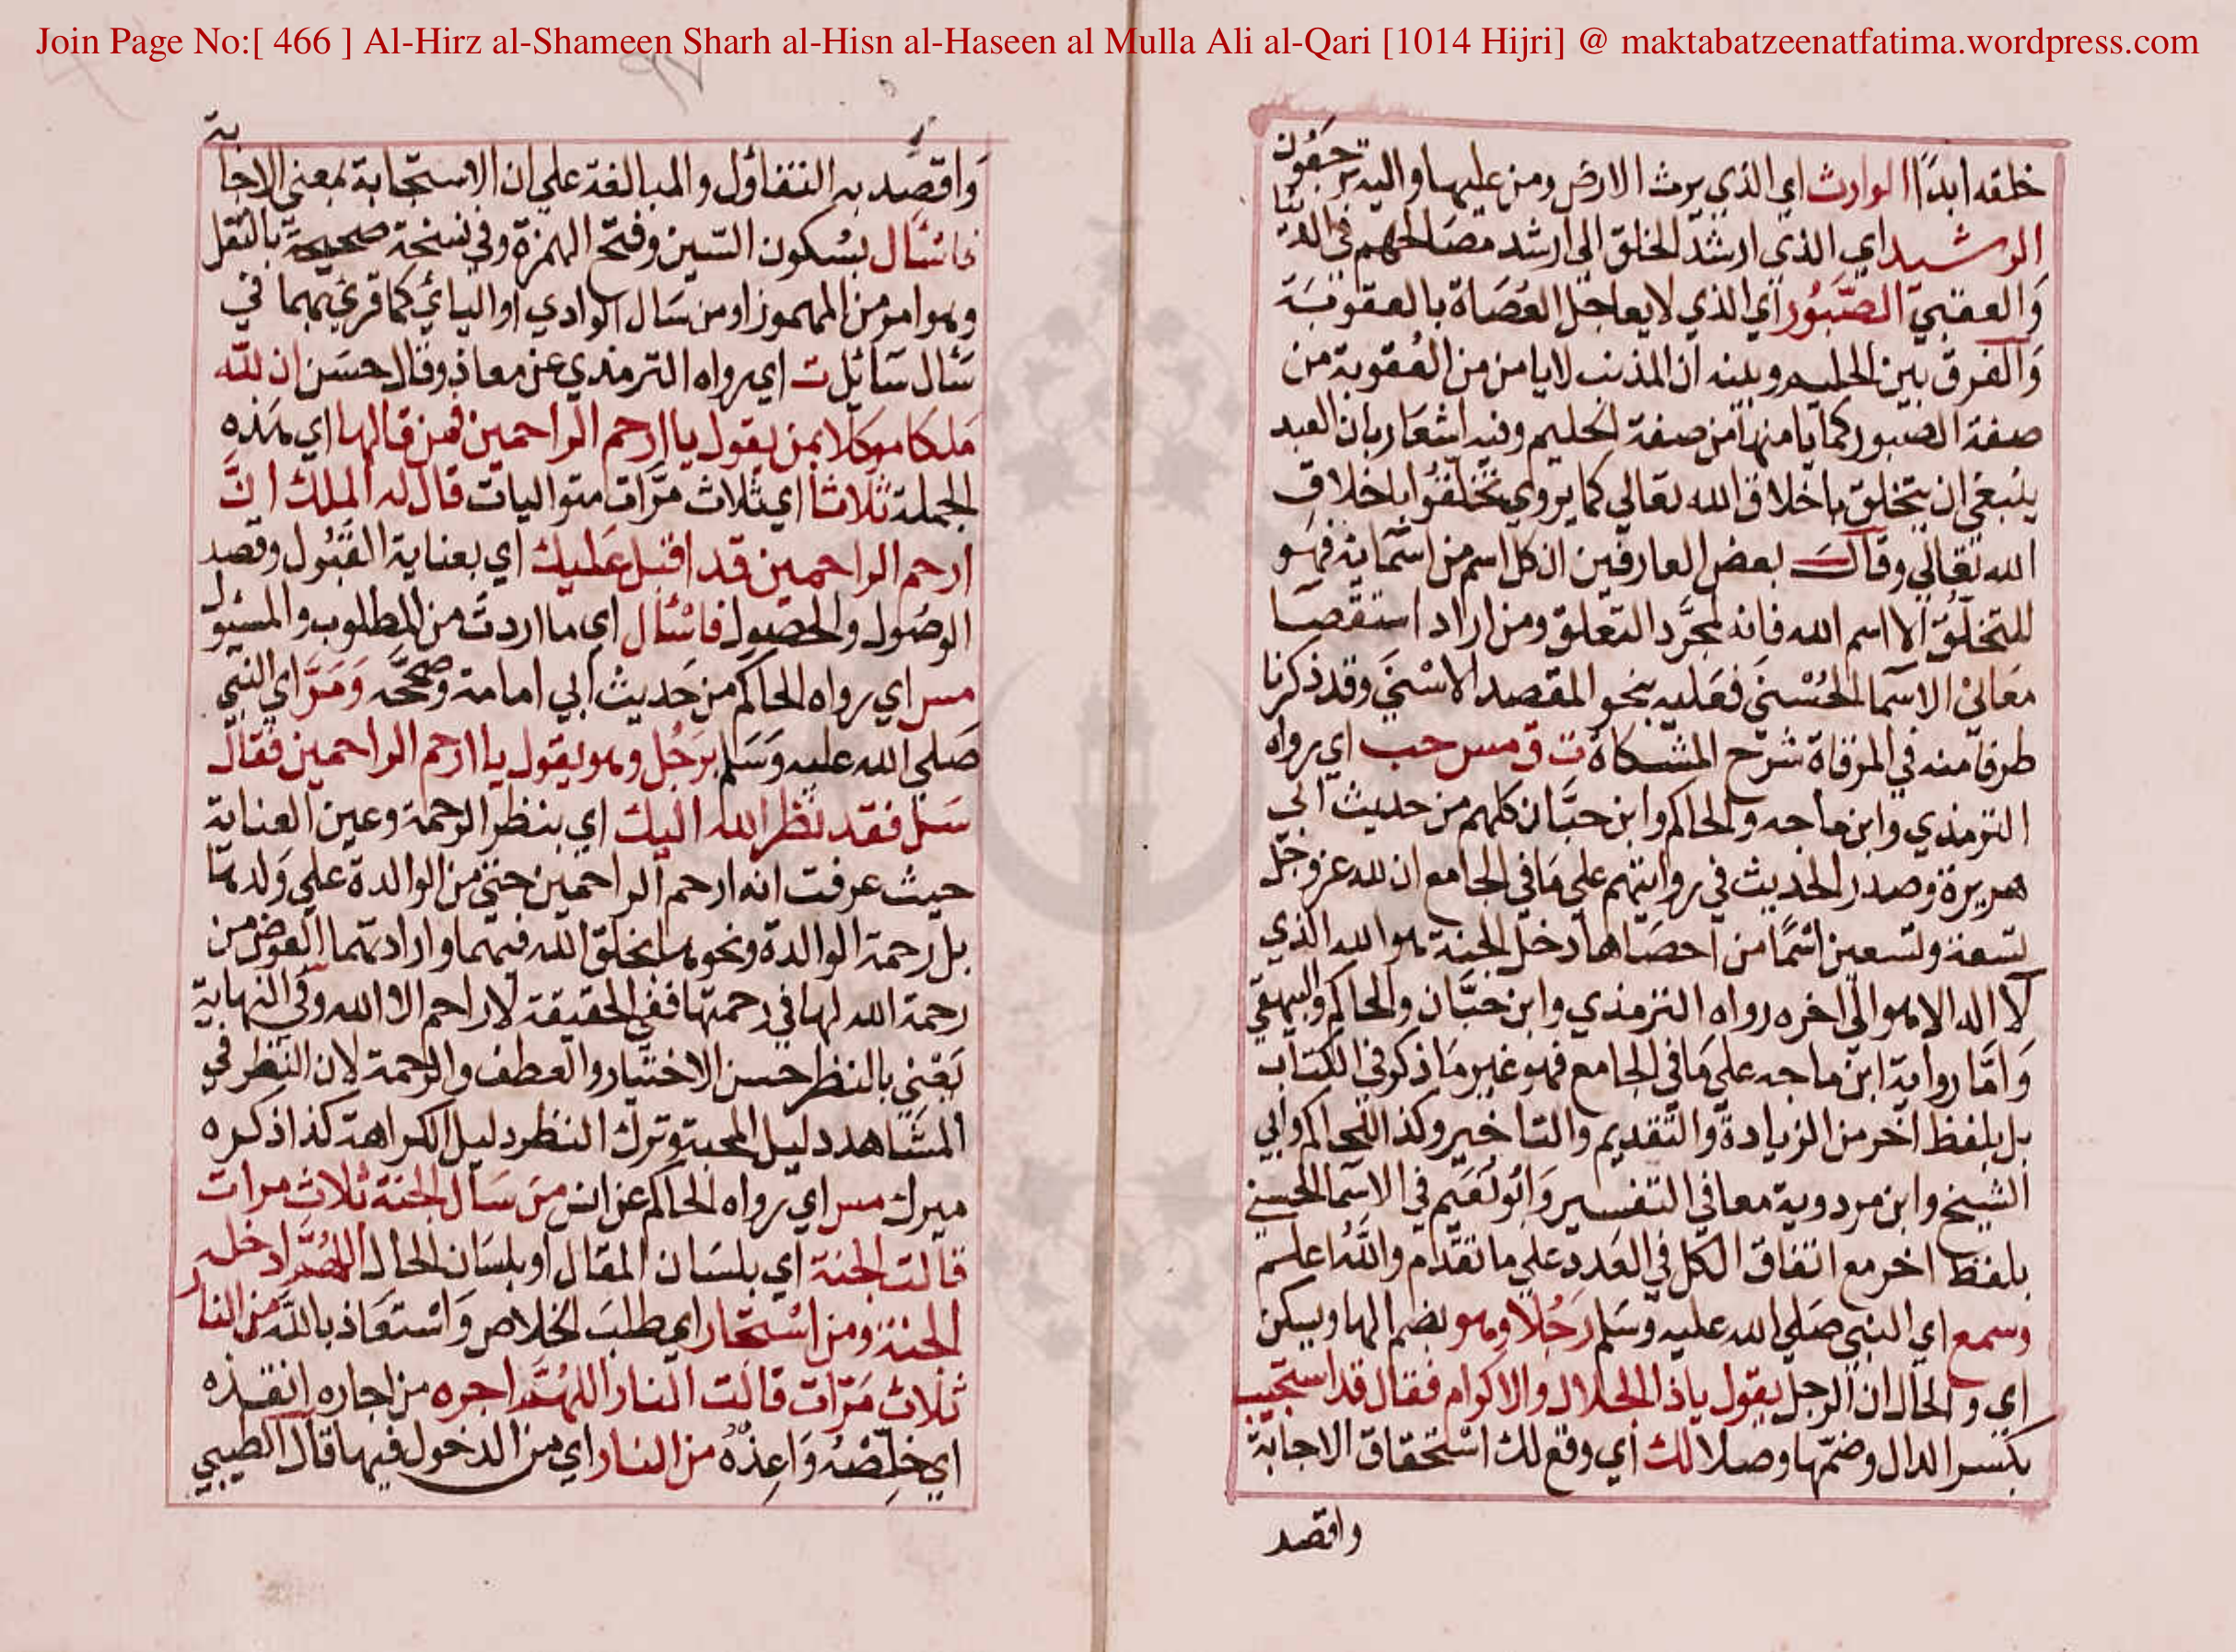 Join Page No:[ 466 ] Al-Hirz al-Shameen Sharh al-Hisn al-Haseen al Mulla Ali al-Qari [1014 Hijri] @ maktabatzeenatfatima.wordpress.com
خلقه ابدًا الوارث اي الذي يرث الارض ومن عليها واليه يرجعون
الرشيد اي الذي ارشد الخلق الي ارشد مصالحهم في الدنيا
والعقبي الصَّبُور اي الذي لا يعاجل العُصَاة بالعقوبة
والفرق بين الحليم وبينه ان المذنب لا يامن من العُقوبة من
صفة الصبور كما يامنها من صفة الحليم وفيه اشعار بان العبد
ينبغي ان يتخلق باخلاق الله تعالي كما يروي تخلقوا باخلاق
الله تعالي وقال بعض العارفين ان كل اسم من اسمائه فهو
للتخلّق الا اسم الله فانه لمجرّد التعلق ومن اراد استقصا
معاني الاسما الحُسْنَي فعليه بنحو المقصد الاسْنَي وقد ذكرنا
طرفا منه في المرقاة شرح المشكاة ت ق مس حب اي رواه
الترمذي وابن ماجه والحاكم وابن حبَّان كلهم من حديث ابي
هريرة وصدر الحديث في روايتهم علي ما في الجامع ان لله عز وجل
تسعة وتسعين اسمًا من احصاها دخل الجنة هو الله الذي
لا اله الا هو الي اخره رواه الترمذي وابن حبَّان والحاكم والبيهقي
وَامَّا رواية ابن ماجه علي مَا في الجامع فهو غير مَا ذكر في الكتاب
بل بلفظ اخر من الزيادة والتقديم والتاخير وكذا للحاكم وابي
الشيخ وابن مردوية معا في التفسير وابُو نُعَيم في الاسما الحسني
بلفظ اخر مع اتفاق الكل في العدد علي ما تقدّم والله اعلم
وسمع اي النبي صَلي الله عليه وسَلم رَجُلا وهو بضم الها ويسكن
اي والحال ان الرجل يقول ياذا الجلال والاكرام فقال قد استجيب
بكسر الدال وضمّها وصلا لك اي وقع لك استحقاق الاجابة
واقصد
وَاقصد به التفاؤل والمبالغة علي ان الاستجابة بمعني الاجابة
فاسْأل بسُكون السّين وفتح الهمزة وفي نسخة صحيحة بالنقل
وهو امر من المهموز او من سَال الوادي او اليائي كما قرئ بهما في
سَأل سَائل ت اي رواه الترمذي عن معاذ وقال حسَن ان للّه
مَلكا موكلا بمن يقول يا ارحم الراحمين فمن قالها اي هذه
الجملة ثلاثا اي ثلاث مرَّات متواليات قال له الملك انّ
ارحم الراحمين قد اقبل عليك اي بعناية القبُول وقصد
الوصُول والحصول فاسْأل اي ما اردت من المطلوب والمسئول
مس اي رواه الحاكم من حَديث ابي امامة وصحّحه وَمَرَّ اي النبي
صَلي الله عليه وَسَلم برَجُل وهو يقول يا ارحم الراحمين فقال
سَل فقد نظر الله اليك اي بنظر الرحمة وعين العناية
حيث عرفت انه ارحم الراحمين حتي من الوالدة علي وَلدها
بل رحمة الوالدة ونحوها بخلق الله فيهما وارادتهما العوض من
رحمة الله لها في رحمتها ففي الحقيقة لا راحم الا الله وفي النهاية
يَعْني بالنظر حسن الاختيار والعطف والرحمة لان النظر في
المشاهد دليل المحبة وترك النظر دليل الكراهة كذا ذكره
ميرك مس اي رواه الحاكم عن انس من سَال الجنة ثلاث مرات
قالت الجنة اي بلسَان المقال او بلسَان الحال اللهُمَّ ادخله
الجنة ومن استجار اي طلبَ الخلاص وَاسْتعَاذ بالله من النار
ثلاث مَرّات قالت النار اللهُمَّ اجره من اجاره انقذه
اي خلِّصْهُ وَاعِذْهُ من النار اي من الدخول فيها قال الطيبي